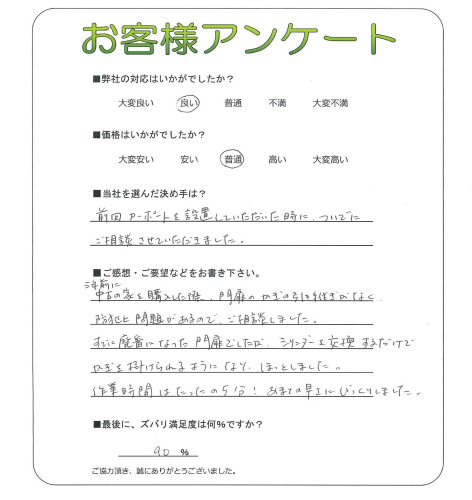 お客様アンケート
■弊社の対応はいかがでしたか？
大変良い 良い 普通 不満 大変不満
■価格はいかがでしたか？
大変安い 安い 普通 高い 大変高い
■当社を選んだ決め手は？
前回カーポートを設置していただいた時に、ついでに
ご相談させていただきました。
■ご感想・ご要望などをお書き下さい。
三年前に
中古の家を購入した際、門扉のカギの引き継ぎがなく、
防犯上問題があるので、ご相談しました。
すでに廃番になった門扉でしたが、シリンダーを交換するだけで
カギを掛けられるようになり、ほっとしました。
作業時間はたったの5分！あまりの早さにびっくりしました。
■最後に、ズバリ満足度は何%ですか？
90 %
ご協力頂き、誠にありがとうございました。